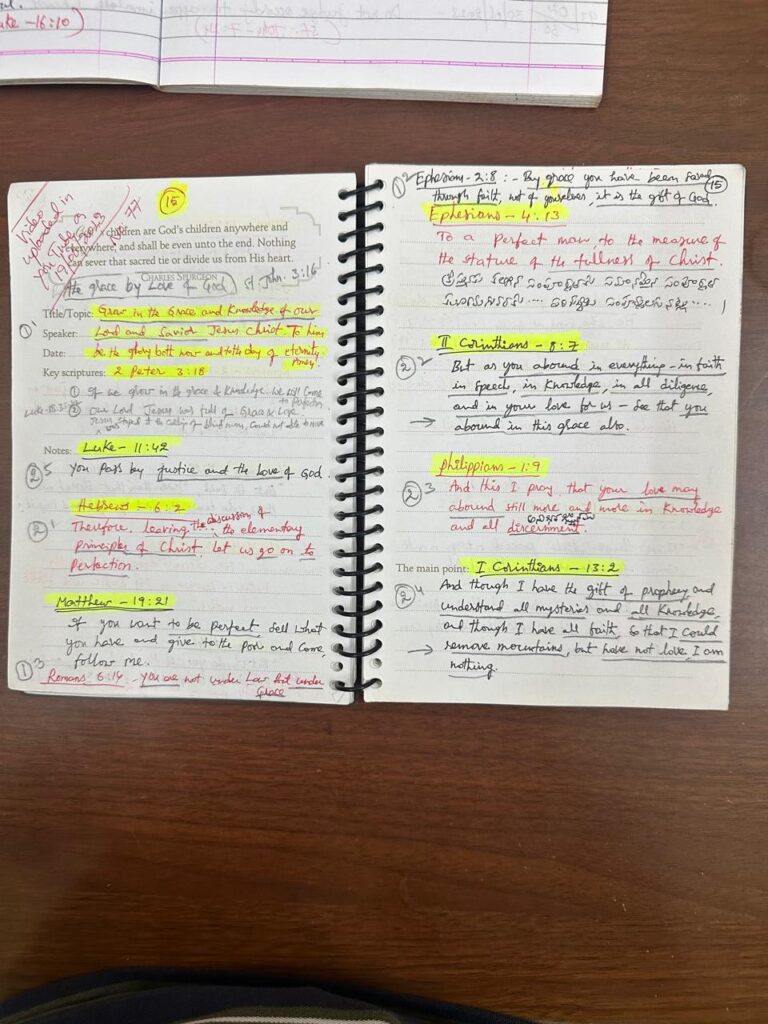 Luke - 16:10)
15
Video in
uploaded in
You Tube on
19/09/2013
No 77
children are God's children anywhere and
everywhere, and shall be even unto the end. Nothing
can sever that sacred tie or divide us from His heart.
CHARLES SPURGEON
the grace by Love of God) St John. 3:16
1
Title/Topic: Grow in the Grace and Knowledge of our
Speaker: Lord and Savior Jesus Christ. To him
Date: be the glory both now and to the day of eternity
Amen
Key scriptures: 2 Peter 3:18
① If we grow in the grace & Knowledge. we will come
to Perfection
② Our Lord Jesus was full of Grace & Love.
Jesus stopped at the calling of blind man, Could not able to move
Notes: Luke - 11:42
② 5 You pass by justice and the Love of God.
Hebrews - 6:2
② 1 Therefore, leaving the discussion of the elementary
principles of Christ, let us go on to
Perfection.
Matthew - 19:21
If you want to be perfect, sell what
you have and give to the poor and come,
follow me.
① 3 Romans 6:14 - you are not under Law but under
Grace
① 2 Ephesians - 2:8 :- By grace you have been saved
through faith, not of yourselves, it is the gift of God.
15
Ephesians - 4:13
To a perfect man, to the measure of
the stature of the fullness of Christ.
② 2 II Corinthians - 8:7
But as you abound in everything - in faith
in speech, in Knowledge, in all diligence,
and in your love for us - see that you
→ abound in this grace also.
philippians - 1:9
② 3 And this I pray, that your love may
abound still more and more in Knowledge
and all discernment.
The main point: I Corinthians - 13:2
② 4 And though I have the gift of prophecy, and
understand all mysteries and all Knowledge,
and though I have all faith, so that I could
→ remove mountains, but have not love, I am
nothing.